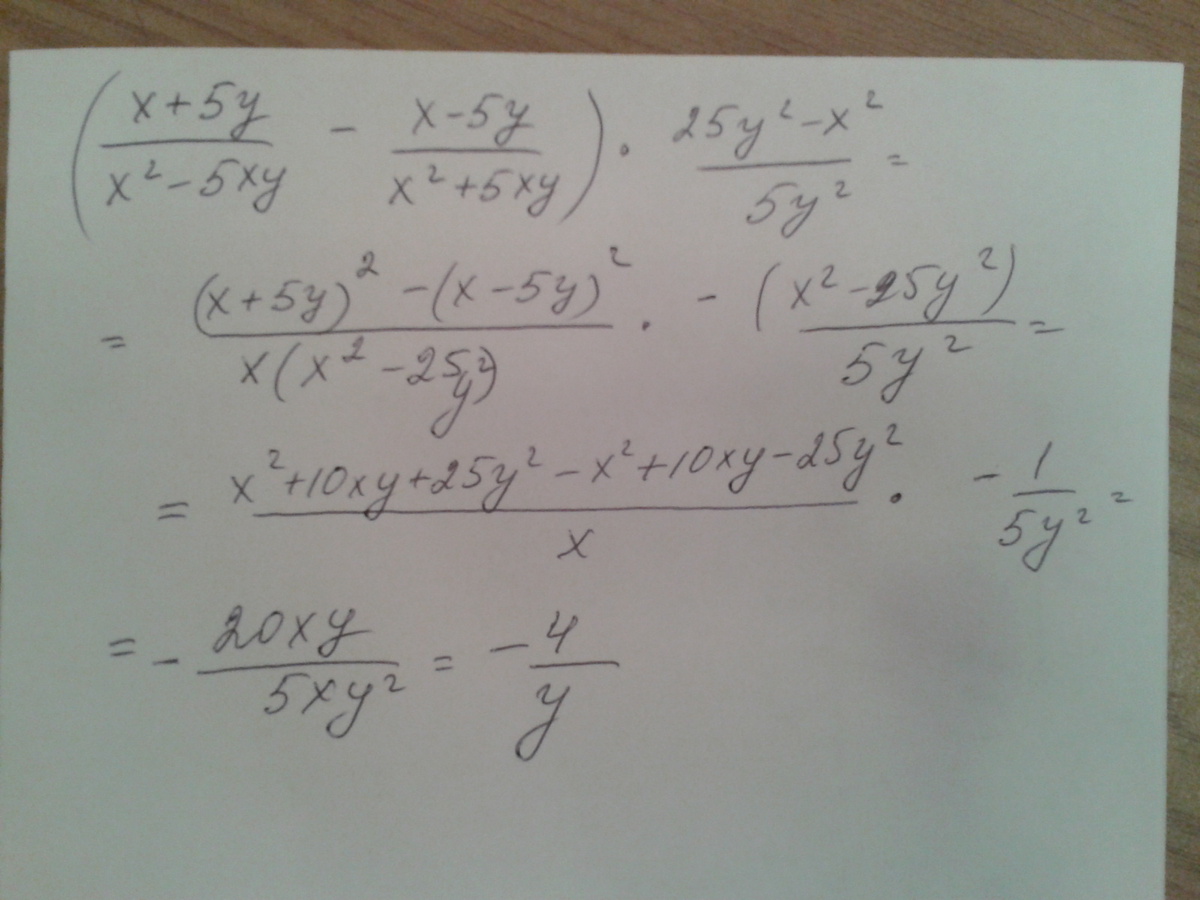 ((x+5y)/(x²-5xy) - (x-5y)/(x²+5xy)) · (25y²-x²)/(5y²) =
= ((x+5y)²-(x-5y)²)/(x(x²-25y²)) · -(x²-25y²)/(5y²) =
= (x²+10xy+25y²-x²+10xy-25y²)/x · -1/(5y²) =
= -20xy/(5xy²) = -4/y